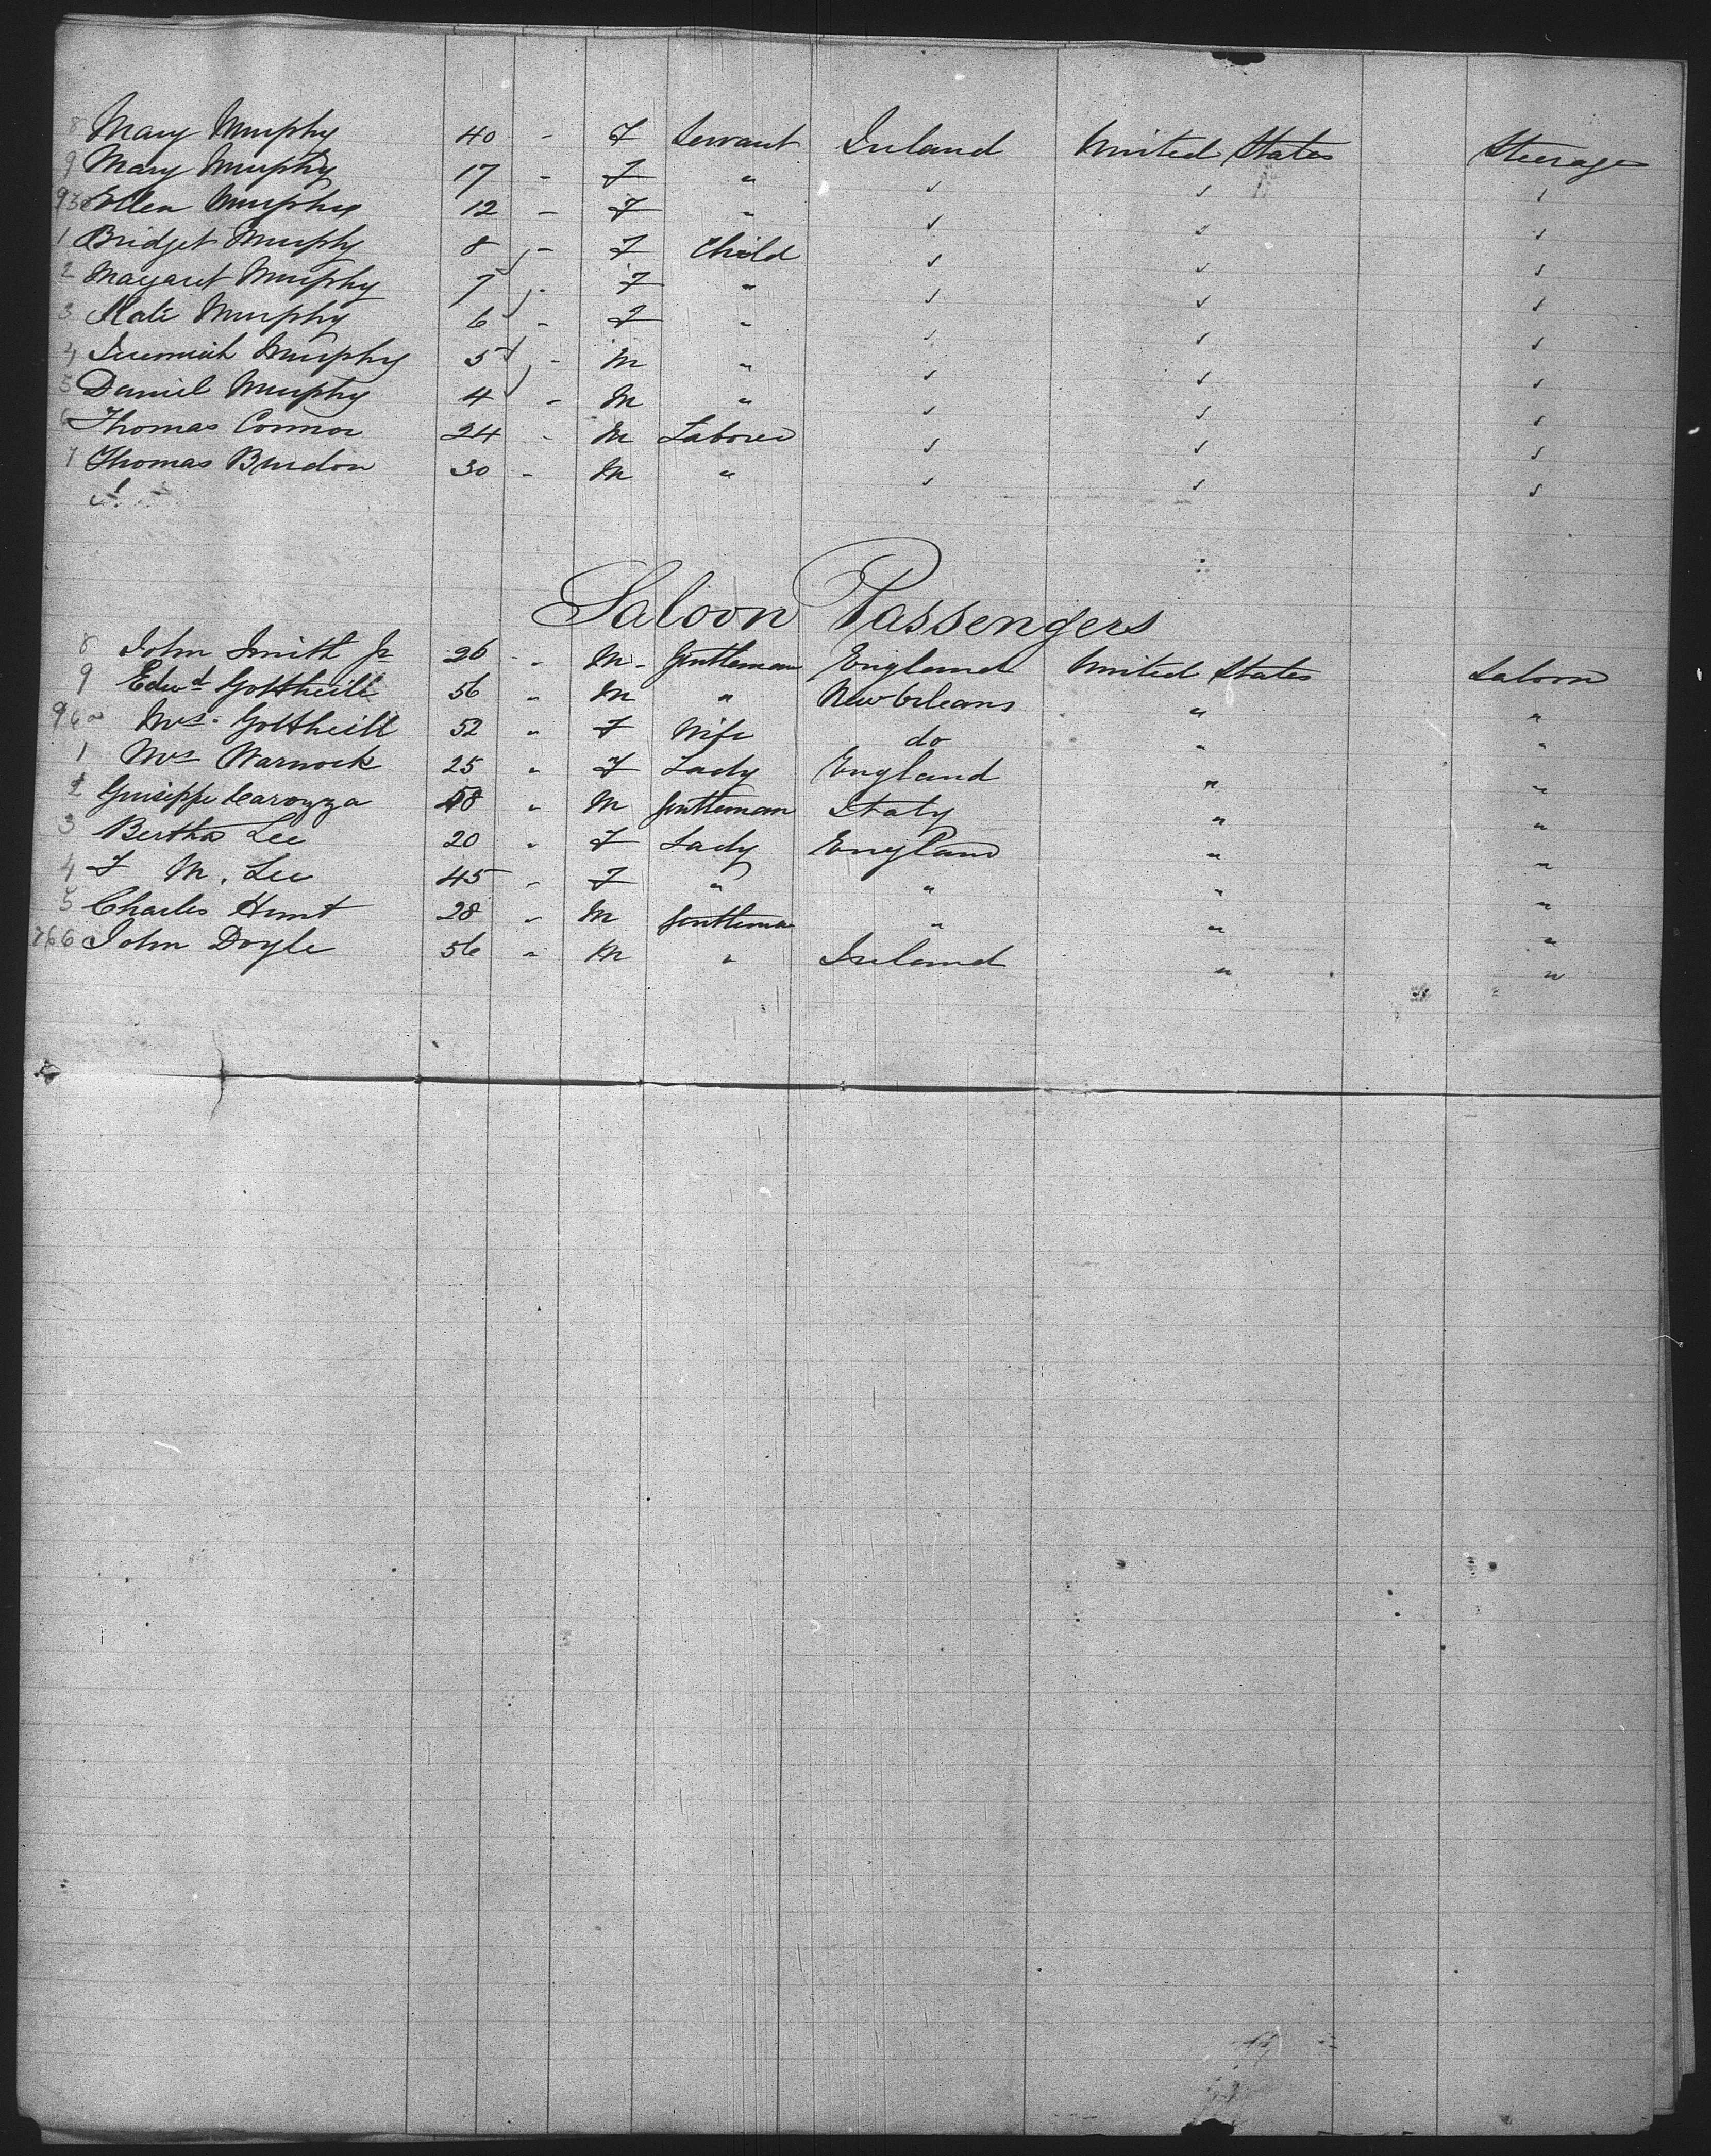 8 Mary Murphy 40 - F Servant Ireland United States Steerage
9 Mary Murphy 17 - F " " " "
930 Ellen Murphy 12 - F " " " "
1 Bridget Murphy 8 - F Child " " "
2 Margaret Murphy 7 - F " " " "
3 Kate Murphy 6 - F " " " "
4 Jeremiah Murphy 5 - M " " " "
5 Daniel Murphy 4 - M " " " "
6 Thomas Connor 24 - M Laborer " " "
7 Thomas Burdon 30 - M " " " "
Saloon Passengers
8 John Smith Jr 26 " M - Gentleman England United States Saloon
9 Edwd Gottheill 56 " M " New Orleans " "
960 Mrs. Gottheill 52 " F Wife do " "
1 Mrs Warnock 25 " F Lady England " "
2 Guiseppe Carozza 48 " M Gentleman Italy " "
3 Bertha Lee 20 " F Lady England " "
4 F M. Lee 45 " F " " " "
5 Charles Hunt 28 " M Gentleman " " "
766 John Doyle 56 " M " Ireland " "